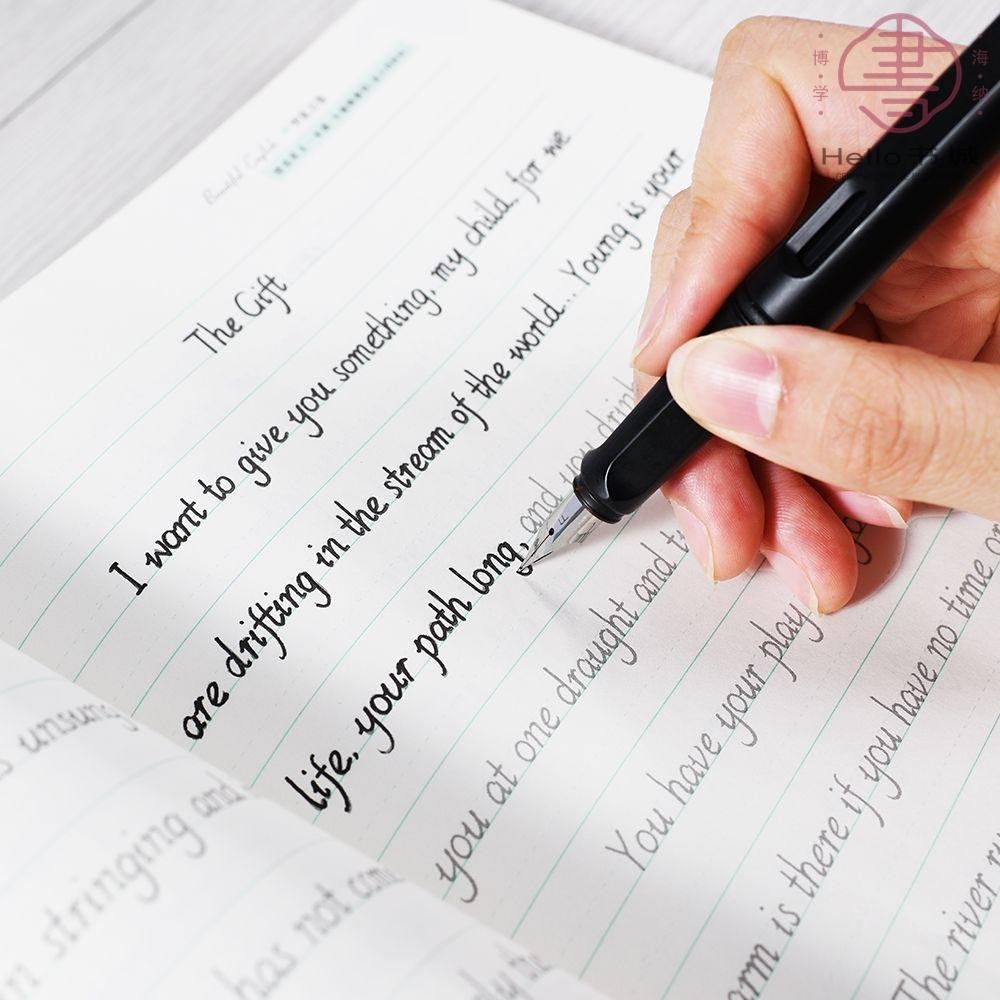 博学
海纳
Hello 书城
Beautiful English
The Gift
I want to give you something, my child, for we
are drifting in the stream of the world... Young is your
life, your path long, and you drink
you at one draught and
You have your play
arm is there if you have no time
The river
unsung
stringing and
has not